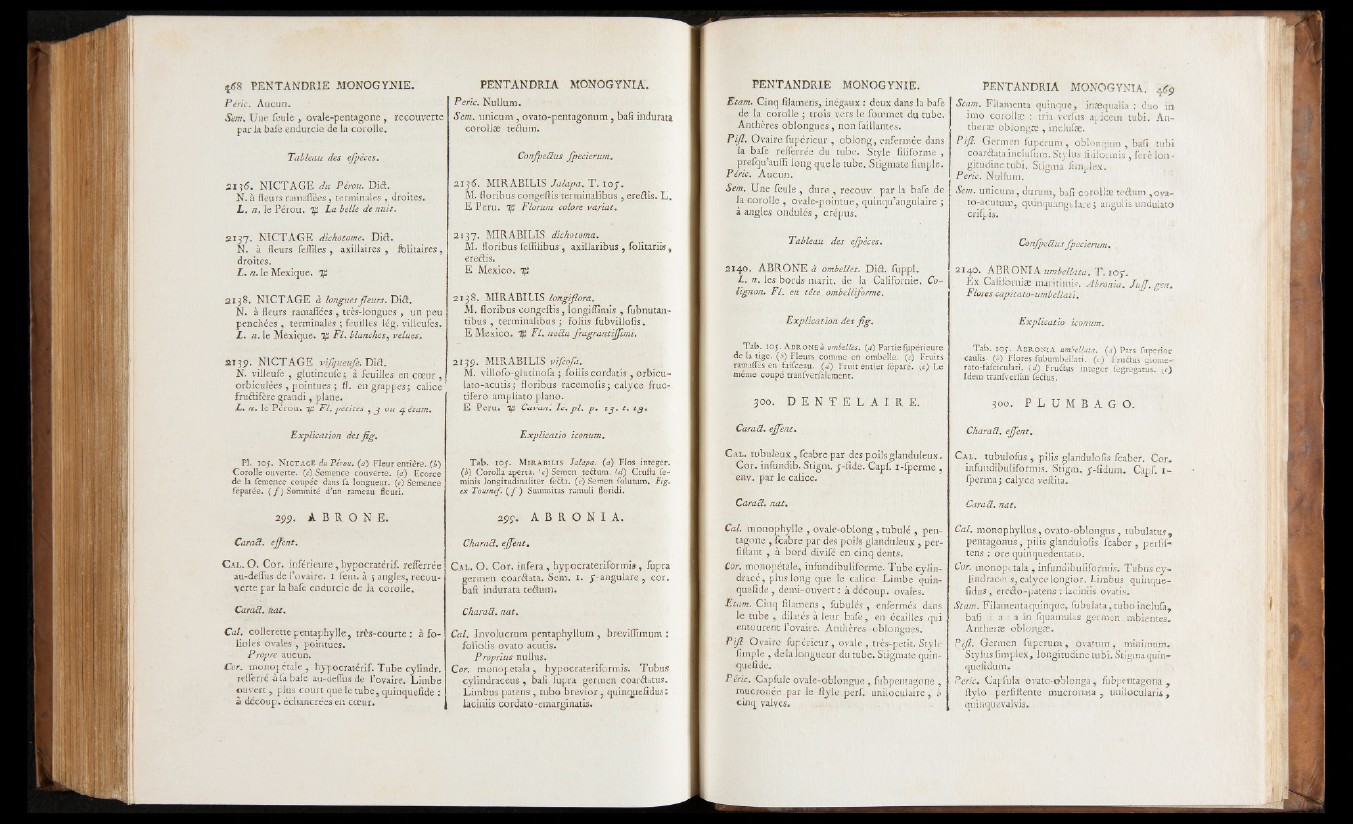 468 PENTANDRIE MONOGYNIE.
Péric. Aucun.
Sem. Une ſeule, ovale-pentagone, recouverte
par la baſe endurcie de la corolle.
Tableau des eſpèces.
2136. NICTAGE du Pérou. Dict.
N. à fleurs ramaſſées, terminales, droites.
L. n. le Pérou. ♃ La belle de nuit.
2137. NICTAGE dichotome. Dict.
N. à fleurs ſeſſiles, axillaires, ſolitaires,
droites.
L. n. le Mexique. ♃
2138. NICTAGE à longues fleurs. Dict.
N. à fleurs ramaſſées, très-longues, un peu
penchées, terminales; feuilles lég. villeuſes.
L. n. le Mexique. ♃ Fl. blanches, velues.
2139. NICTAGE viſqueuſe. Dict.
N. villeuſe, glutineuſe; à feuilles en cœur,
orbiculées, pointues; fl. en grappes; calice
fructifère grandi, plane.
L. n. le Pérou. ♃ Fl. petites, 3 ou 4 étam.
Explication des fig.
Pl. 105. NICTAGE du Pérou. (a) Fleur entière. (b)
Corolle ouverte. (c) Semence couverte. (d) Ecorce
de la ſemence coupée dans ſa longueur. (e) Semence
ſéparée. (f) Sommité d'un rameau fleuri.
299. ABRONE.
Caract. eſſent.
CAL. O. Cor. inférieure, hypocratérif. reſſerrée
au-deſſus de l'ovaire. 1 ſem. à 5 angles, recou-
verte par la baſe endurcie de la corolle.
Caract. nat.
Cal. collerette pentaphylle, très-courte: à fo-
lioles ovales, pointues.
Propre aucun.
Cor. monopétale, hypocratérif. Tube cylindr.
reſſerré à ſa baſe au-deſſus de l'ovaire. Limbe
ouvert, plus court que le tube, quinquefide:
à découp. échancrées en cœur.
PENTANDRIA MONOGYNIA.
Peric. Nullum.
Sem. unicum, ovato-pentagonum, baſi indurata
corollæ tectum.
Conſpectus ſpecierum.
2136. MIRABILIS Jalapa. T. 105.
M. floribus congeſtis terminalibus, erectis. L.
E Peru. ♃ Florum colore variat.
2137. MIRABILIS dichotoma.
M. floribus ſeſſilibus, axillaribus, ſolitariis,
erectis.
E Mexico. ♃
2138. MIRABILIS longiflora.
M. floribus congeſtis, longiſſimis, ſubnutan-
tibus, terminalibus; foliis ſubvilloſis.
E Mexico. ♃ Fl. noctu fragrantiſſimi.
2139. MIRABILIS viſcoſa.
M. villoſo-glutinoſa; foliis cordatis, orbicu-
lato-acutis; floribus racemoſis; calyce fruc-
tifero ampliato plano.
E Peru. ♃ Cavan. Ic. pl. p. 13. t. 19.
Explicatio iconum.
Tab. 105. MIRABILIS Jalapa. (a) Flos integer.
(b) Corolla aperta. (c) Semen tectum. (d) Cruſta ſe-
minis longitudinaliter ſecta. (e) Semen ſolutum. Fig.
ex Tournef. (f) Summitas ramuli floridi.
299. ABRONIA.
Charact. eſſent.
CAL. O. Cor. infera, hypocrateriformis, ſupra
germen coarctata. Sem. 1. 5-angulare, cor.
baſi indurata tectum.
Charact. nat.
Cal. Involucrum pentaphyllum, breviſſimum:
foliolis ovato acutis.
Proprius nullus.
Cor. monopetala, hypocrateriformis. Tubus
cylindraceus, baſi ſupra germen coarctatus.
Limbus patens, tubo brevior, quinquefidus:
laciniis cordato-emarginatis.
PENTANDRIE MONOGYNIE.
Etam. Cinq filamens, inégaux: deux dans la baſe
de la corolle; trois vers le ſommet du tube.
Anthères oblongues, non ſaillantes.
Piſt. Ovaire ſupérieur, oblong, enfermée dans
ſa baſe reſſerrée du tube. Style filiforme,
preſqu'auſſi long que le tube. Stigmate ſimple.
Péric. Aucun.
Sem. Une ſeule, dure, recouv. par la baſe de
la corolle, ovale-pointue, quinqu'angulaire;
à angles ondulés, crépus.
Tableau des eſpèces.
2140. ABRONE à ombelles. Dict. ſuppl.
L. n. les bords marit. de la Californie. Co-
lignon. Fl. en tête ombelliforme.
Explication des fig.
Tab. 105. ABRONE à ombelles. (a) Partie ſupérieure
de la tige. (b) Fleurs comme en ombelle. (c) Fruits
ramaſſés en faiſceau. (d) Fruit entier ſéparé. (e) Le
même coupé tranſverſalement.
300. DENTELAIRE.
Caract. eſſent.
CAL. tubuleux, ſcabre par des poils glanduleux.
Cor. infundib. Stigm. 5-fide. Capſ. 1-ſperme,
env. par le calice.
Caract. nat.
Cal. monophylle, ovale-oblong, tubulé, pen-
tagone, ſcabre par des poils glanduleux, per-
ſiſtant, à bord diviſé en cinq dents.
Cor. monopétale, infundibuliforme. Tube cylin-
dracé, plus long que le calice. Limbe quin-
quefide, demi-ouvert: à découp. ovales.
Etam. Cinq filamens, ſubulés, enfermés dans
le tube, dilatés à leur baſe, en écailles qui
entourent l'ovaire. Anthères oblongues.
Piſt. Ovaire ſupérieur, ovale, très-petit. Style
ſimple, de la longueur du tube. Stigmate quin-
quefide.
Péric. Capſule ovale-oblongue, ſubpentagone,
mucronée par le ſtyle perſ. uniloculaire, à
cinq valves.
PENTANDRIA MONOGYNIA. 469
Stam. Filamenta quinque, inæqualia: duo in
imo corollæ: tria verſus apicem tubi. An-
theræ oblongæ, incluſæ.
Piſt. Germen ſuperum, oblongum, baſi tubi
coarctata incluſum. Stylus filiformis, ferè lon-
gitudine tubi. Stigma ſimplex.
Peric. Nullum.
Sem. unicum, durum, baſi corollæ tectum, ova-
to-acutum, quinquangulare; angulis undulato
criſpis.
Conſpectus ſpecierum.
2140. ABRONIA umbellata. T. 105.
Ex Californiæ maritimis. Abronia. Juſſ. gen.
Flores capitato-umbellati.
Explicatio iconum.
Tab. 105. ABRONIA umbellata. (a) Pars ſuperior
caulis. (b) Flores ſubumbellati. (c) Fructus glome-
rato-faſciculati. (d) Fructus integer ſegregatus. (e)
Idem tranſverſim ſectus.
300. PLUMBAGO.
Charact. eſſent.
CAL. tubuloſus, pilis glanduloſis ſcaber. Cor.
infundibuliformis. Stigm. 5-fidum. Capſ. 1-
ſperma; calyce veſtita.
Caract. nat.
Cal. monophyllus, ovato-oblongus, tubulatus,
pentagonus, pilis glanduloſis ſcaber, perſiſ-
tens: ore quinquedentato.
Cor. monopetala, infundibuliformis. Tubus cy-
lindraceus, calyce longior. Limbus quinque-
fidus, erecto-patens: laciniis ovatis.
Stam. Filamenta quinque, ſubulata, tubo incluſa,
baſi in ſquamulas germen ambientes.
Antheræ oblongæ.
Piſt. Germen ſuperum, ovatum, minimum.
Stylus ſimplex, longitudine tubi. Stigma quin-
quefidum.
Peric. Capſula ovato-oblonga, ſubpentagona,
ſtylo perſiſtente mucronata, unilocularis,
quinquevalvis.